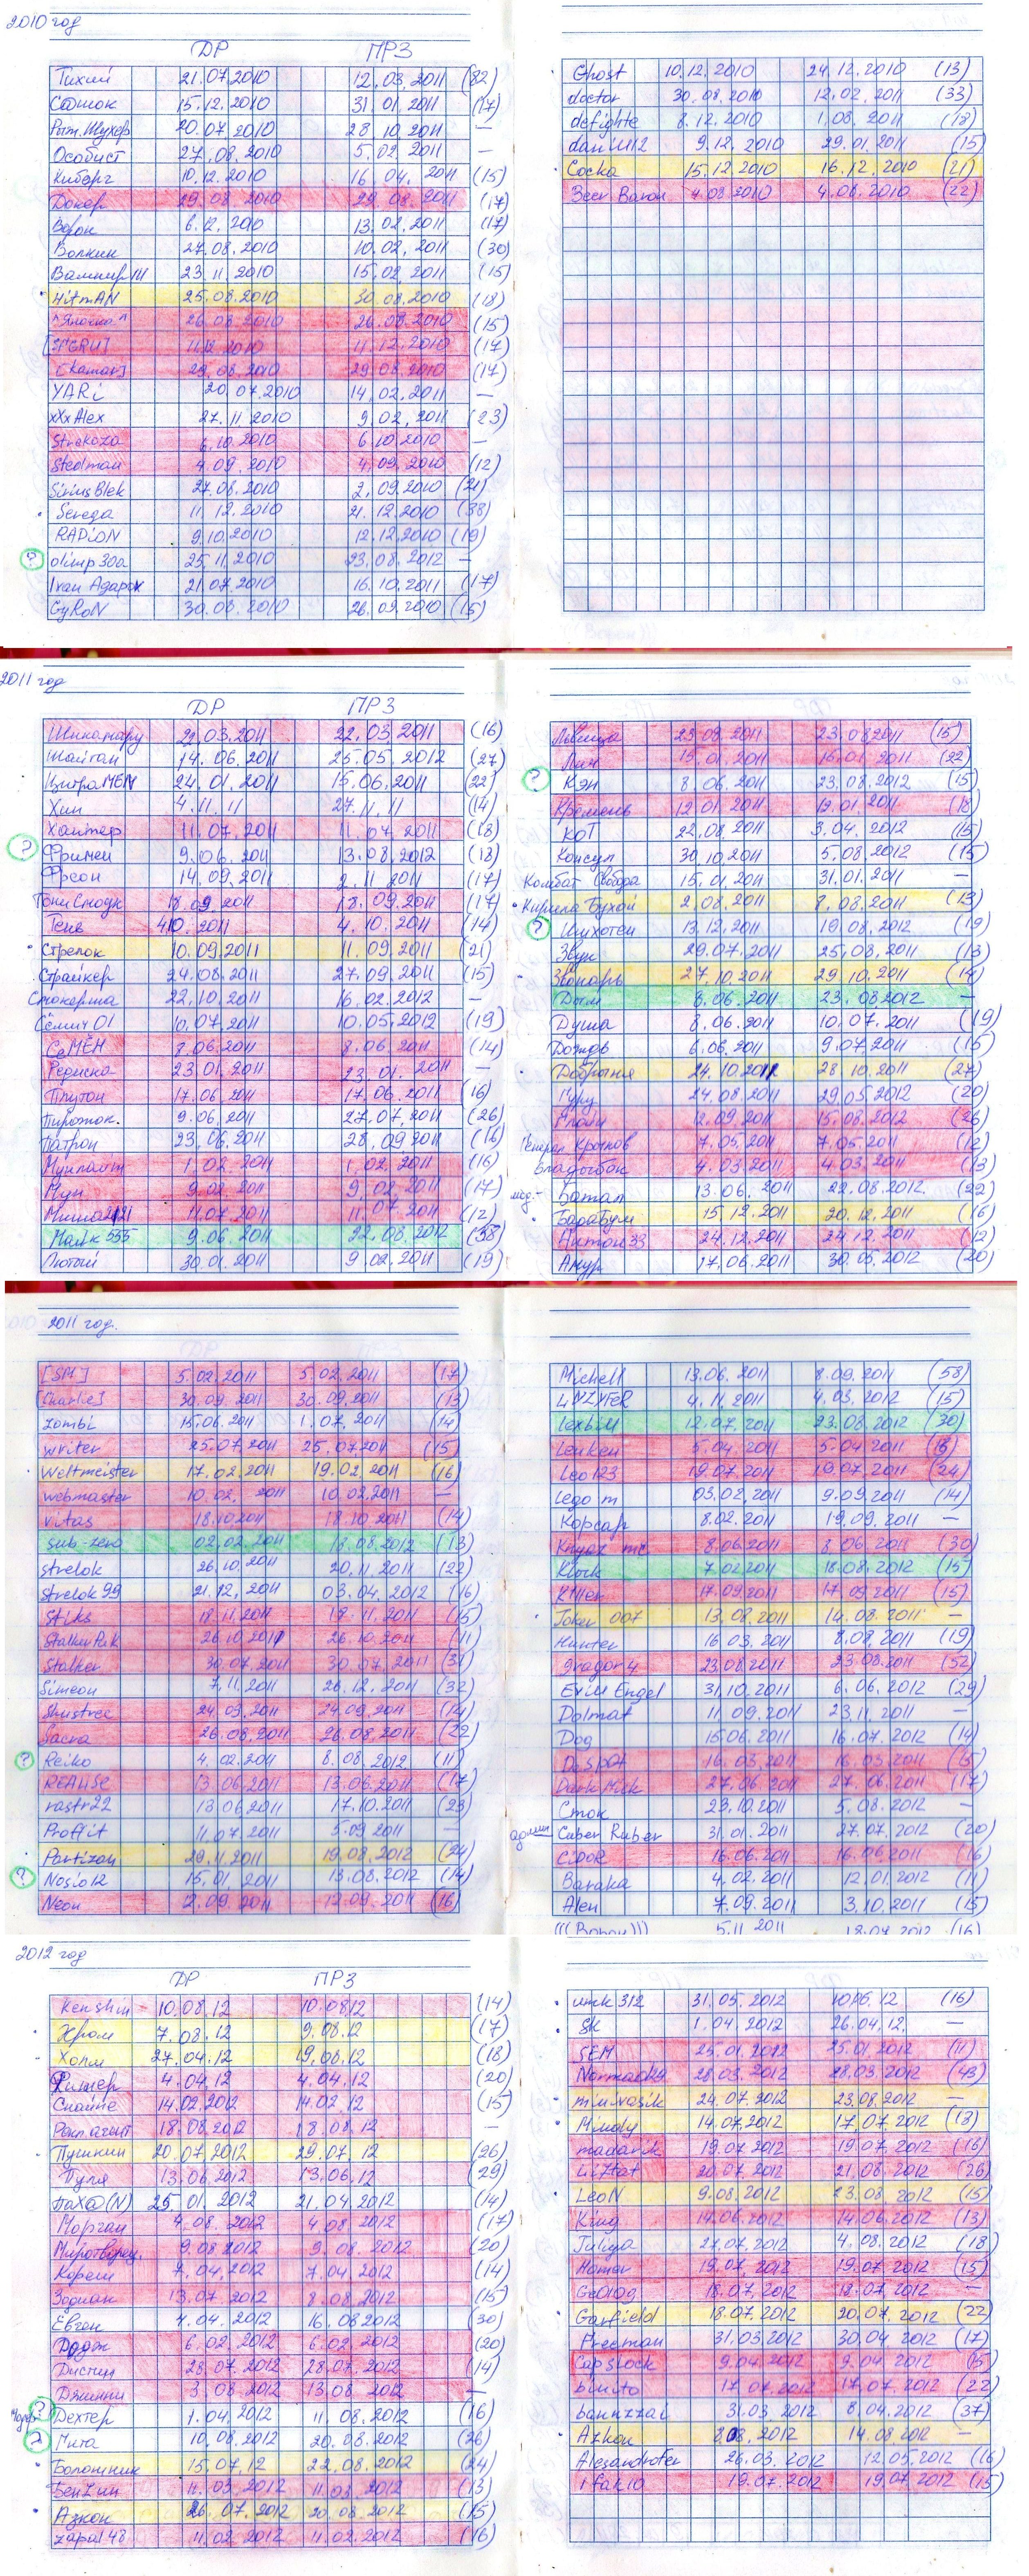 2010 год
ДР ПРЗ
Тихий 21.07.2010 12.03.2011 (82)
15.12.2010 31.01.2011 (17)
20.07.2010 28.10.2011 —
Особист 27.08.2010 5.02.2011 —
Киборг 10.12.2010 16.04.2011 (15)
Докер 29.08.2010 29.08.2010 (17)
Ворон 6.12.2010 13.02.2011 (17)
Волкин 27.08.2010 10.02.2011 (30)
Вампир III 23.11.2010 15.02.2011 (15)
HitmAN 25.08.2010 30.08.2010 (18)
26.08.2010 26.08.2010 (15)
11.12.2010 11.12.2010 (17)
29.08.2010 29.08.2010 (17)
YARi 20.07.2010 14.02.2011 —
xXxAlex 27.11.2010 9.02.2011 (23)
Strekoza 6.10.2010 6.10.2010 —
Stedman 4.09.2010 4.09.2010 (12)
Sirius Blek 27.08.2010 2.09.2010 (21)
Serega 11.12.2010 21.12.2010 (38)
RADiON 9.10.2010 12.12.2010 (19)
? olimp30a 25.11.2010 23.08.2012 —
Ivan Agapov 21.07.2010 16.10.2011 (17)
GyRoN 30.08.2010 26.09.2010 (15)
Ghost 10.12.2010 24.12.2010 (13)
doctor 30.08.2010 12.02.2011 (33)
defighte 8.12.2010 1.08.2011 (18)
9.12.2010 29.01.2011 (15)
Сосна 15.12.2010 16.12.2010 (21)
4.08.2010 4.08.2010 (22)
2011 год
ДР ПРЗ
Шикамару 22.03.2011 22.03.2011 (16)
Шайтан 14.06.2011 25.05.2012 (27)
ЦитраMEN 24.01.2011 15.06.2011 (22)
Хип 4.11.11 27.11.11 (14)
Хантер 11.07.2011 11.07.2011 (18)
? Фримен 9.06.2011 13.08.2012 (18)
Фреон 14.09.2011 2.11.2011 (17)
Тони Старк 18.09.2011 18.09.2011 (17)
Тень 4.10.2011 4.10.2011 (14)
Стрелок 10.09.2011 11.09.2011 (21)
Страйкер 24.08.2011 27.09.2011 (15)
22.10.2011 16.02.2012 —
Сёмыч01 10.07.2011 10.05.2012 (19)
СеМЁН 8.06.2011 8.06.2011 (14)
Редиска 23.01.2011 23.01.2011 —
Плутон 17.06.2011 17.06.2011 (16)
Пирожок. 9.06.2011 27.07.2011 (26)
Патрон 23.06.2011 28.09.2011 (16)
1.02.2011 1.02.2011 (16)
Мун 9.02.2011 9.02.2011 (17)
11.07.2011 11.07.2011 (12)
Майк 555 9.06.2011 22.08.2012 (38)
Лютый 30.01.2011 9.02.2011 (19)
Львица 23.08.2011 23.08.2011 (15)
15.01.2011 16.01.2011 (22)
? Кэн 8.06.2011 23.08.2012 (15)
Кремень 12.01.2011 19.01.2011 (18)
КОТ 22.08.2011 3.04.2012 (15)
Консул 30.10.2011 5.08.2012 (15)
Комбат Свобода 15.01.2011 31.01.2011 —
Кирила Бухой 2.08.2011 8.08.2011 (13)
? Ихтиотеп 13.12.2011 19.08.2012 (19)
Звук 29.07.2011 25.08.2011 (13)
Звонарь 27.10.2011 29.10.2011 (14)
Дым 8.06.2011 23.08.2012 —
Душа 8.06.2011 10.07.2011 (19)
Дождь 6.06.2011 9.07.2011 (15)
Добрыня 24.10.2011 28.10.2011 (27)
Гуру 24.08.2011 29.05.2012 (20)
12.09.2011 15.08.2012 (26)
Генерал Кротков 7.05.2011 7.05.2011 (12)
4.03.2011 4.03.2011 (13)
мод.- Батал 13.06.2011 22.08.2012. (22)
Барабум 15.12.2011 20.12.2011 (16)
Антон33 24.12.2011 24.12.2011 (12)
Амур 17.06.2011 30.05.2012 (20)
2011 год.
[SM] 5.02.2011 5.02.2011 (17)
[Charlie] 30.09.2011 30.09.2011 (13)
zombi 15.06.2011 1.07.2011 (14)
writer 25.07.2011 25.07.2011 (15)
Weltmeister 17.02.2011 19.02.2011 (16)
webmaster 10.02.2011 10.02.2011 —
vitas 18.10.2011 18.10.2011 (14)
sub-zero 02.02.2011 18.08.2012 (13)
strelok 26.10.2011 20.11.2011 (22)
strelok 99 21.12.2011 03.04.2012 (16)
Stiks 18.11.2011 18.11.2011 (15)
26.10.2011 26.10.2011 (11)
Stalker 30.07.2011 30.07.2011 (31)
Simeon 7.11.2011 28.12.2011 (32)
Shustree 24.09.2011 24.09.2011 (14)
Sacra 26.08.2011 26.08.2011 (22)
? Reiko 4.02.2011 8.08.2012. (11)
REALISE 13.06.2011 13.06.2011 (17)
rastr22 13.06.2011 17.10.2011 (23)
Proffit 11.07.2011 5.09.2011 —
Partizan 29.11.2011 19.08.2012 (24)
? Nosio12 15.01.2011 13.08.2012 (14)
Neon 12.09.2011 12.09.2011 (16)
Michell 13.06.2011 8.09.2011 (58)
4.11.2011 4.03.2012 (15)
lexbill 12.07.2011 23.08.2012 (30)
Lenken 5.04.2011 5.04.2011
Leo123 19.07.2011 19.07.2011 (24)
Lego m 03.02.2011 9.09.2011 (14)
Корсар 8.02.2011 19.09.2011 —
8.06.2011 8.06.2011 (30)
Klock 7.02.2011 18.08.2012 (15)
Killer 17.09.2011 17.09.2011 (15)
Joker 007 13.08.2011 14.08.2011 —
Hunter 16.03.2011 8.08.2011 (19)
gragor4 23.08.2011 23.08.2011 (52)
Exill Engel 31.10.2011 6.06.2012 (29)
Dolmat 11.09.2011 23.11.2011 —
Dog 15.06.2011 16.07.2012 (14)
Despot 16.03.2011 16.03.2011
27.06.2011 27.06.2011 (17)
Сток 23.10.2011 5.08.2012 —
админ Cuber Ruber 31.01.2011 27.07.2012 (20)
16.06.2011 16.06.2011 (16)
Baraka 4.02.2011 12.01.2012 (11)
Alen 7.09.2011 3.10.2011 (15)
(((Ворон))) 5.11.2011 18.07.2012 (16)
2012 год
ДР ПРЗ
Kenshin 10.08.12 10.08.12 (14)
Хром 7.08.12 9.08.12 (17)
Холм 27.04.12 19.08.12 (18)
4.04.12 4.04.12 (20)
Снайпе 14.02.2012 14.02.12 (15)
18.08.2012 18.08.12 —
Пушкин 20.07.2012 29.07.12 (26)
Пуля 13.06.2012 13.06.12 (29)
Пах@(N) 25.01.2012 21.04.2012 (14)
Морган 4.08.2012 4.08.2012 (17)
Миротворец 9.08.2012 9.08.2012 (20)
Корень 7.04.2012 7.04.2012 (14)
Зодиак 13.07.2012 8.08.2012 (15)
Евген 4.04.2012 16.08.2012 (30)
Додж 6.02.2012 6.02.2012 (20)
28.07.2012 28.07.2012 (14)
Джинни 3.08.2012 13.08.2012 —
? Декстер 1.04.2012 11.08.2012 (16)
? Гита 10.08.2012 20.08.2012 (26)
Болотник 15.07.12 22.08.2012 (24)
БенZин 11.03.2012 11.03.2012 (13)
Азкон 26.07.2012 20.08.2012 (15)
zapal48 11.02.2012 11.02.2012 (16)
umk312 31.05.2012 10.06.12 (16)
SK 1.04.2012 26.04.12. —
SEM 25.01.2012 25.01.2012 (11)
28.03.2012 28.03.2012 (43)
minivasik 24.07.2012 23.08.2012 —
Mindy 14.07.2012 17.07.2012 (18)
madarik 19.07.2012 19.07.2012 (16)
20.07.2012 21.08.2012 (26)
LeoN 9.08.2012 23.08.2012 (15)
King 14.06.2012 14.06.2012 (13)
Juliya 27.07.2012 4.08.2012 (18)
Homer 19.07.2012 19.07.2012 (15)
Geolog 18.07.2012 18.07.2012 —
Garfield 18.07.2012 20.07.2012 (22)
Freeman 31.03.2012 30.04.2012 (17)
Capslock 9.04.2012 9.04.2012 (15)
binito 17.07.2012 17.07.2012 (22)
bannzzai 31.03.2012 8.04.2012 (37)
Azkon 8.08.2012 14.08.2012 —
Alesandrofer 26.03.2012 12.05.2012 (16)
19.07.2012 19.07.2012 (15)